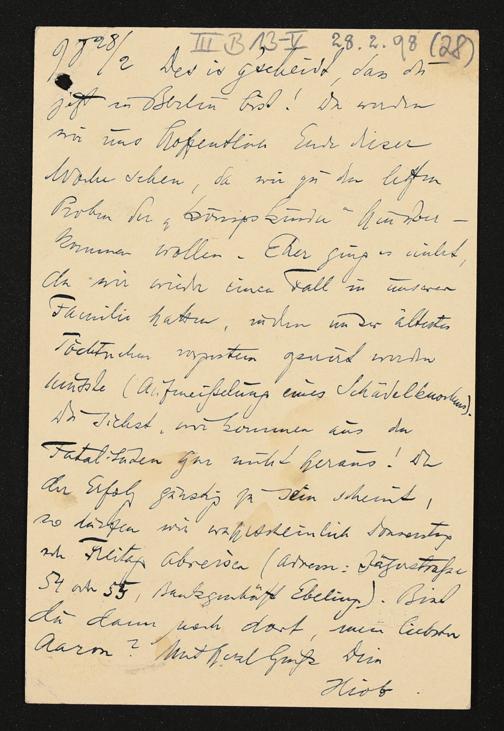 III B 13-V 28.2.98 (28)
98 28/2 Das ist gscheidt, dass du
jetzt in Berlin bist! Da werden
wir uns hoffentlich Ende dieser
Woche sehen, da wir zu den letzten
Proben der „Königskinder“ hinüber-
kommen wollen. Eher ging es nicht,
da wir wieder einen Fall in unserer
Familie hatten, indem unser ältestes
Töchterchen vorgestern operirt werden
musste (Aufmeißelung eines Schädelknochens).
Du siehst, wir kommen aus den
gar nicht heraus! Da
der Erfolg günstig zu sein scheint,
so dürften wir wahrscheinlich Donnerstag
oder Freitag abreisen (Adresse: Jägerstraße
54 oder 55, Bankgeschäft Ebeling). Bist
du dann noch dort, mein liebster
Aaron? Mit herzl Gruß Dein
Hiob.